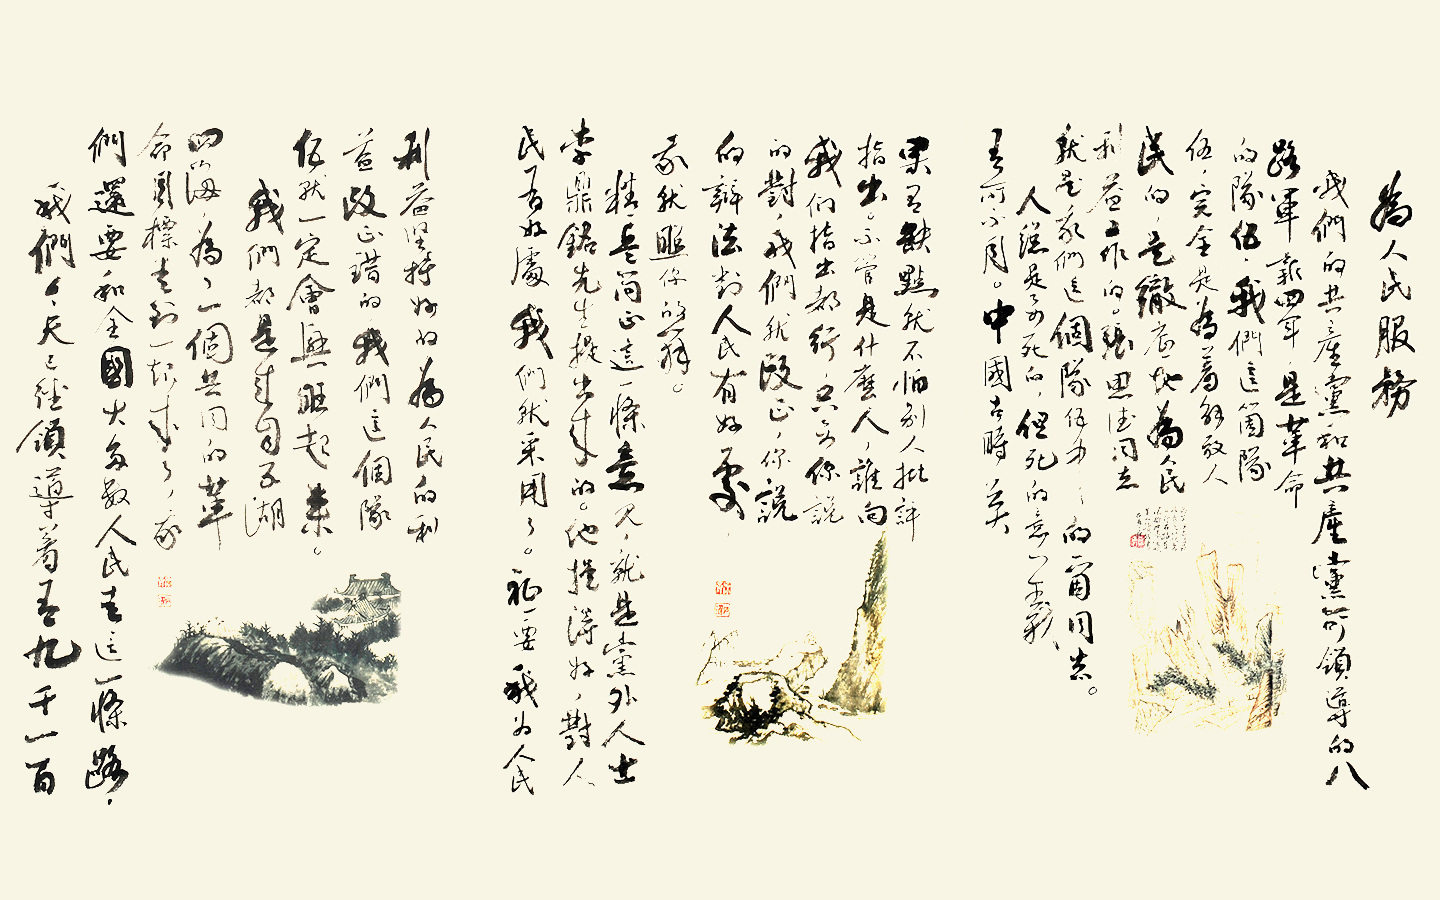 為人民服務
我們的共產黨和共產黨所領導的八
路軍新四軍,是革命
的隊伍,我們這個隊
伍,完全是為着解放人
民的,是徹底地為人民
利益工作的。張思德同志
就是我們這個隊伍中的一個同志。
人總是要死的,但死的意義
有所不同。中國古時
果有缺點就不怕別人批評
指出。不管是什麼人,誰向
我们指出都行,只要你說
的對,我們就改正,你說
的辦法對人民有好處
我就照你的辦。
精兵簡正這一條意見,就是黨外人士
李鼎銘先生提出來的。他提得好,對人
民有好處我們就采用了。只要我为人民
利益堅持好的為人民的利
益改正錯的,我們這個隊
伍就一定會興旺起来。
我們都是来自五湖
四海,為了一個共同的革
命目標走到一起来了,我
們還要和全國大多數人民走這一條路,
我們今天已經領導着有九千一百